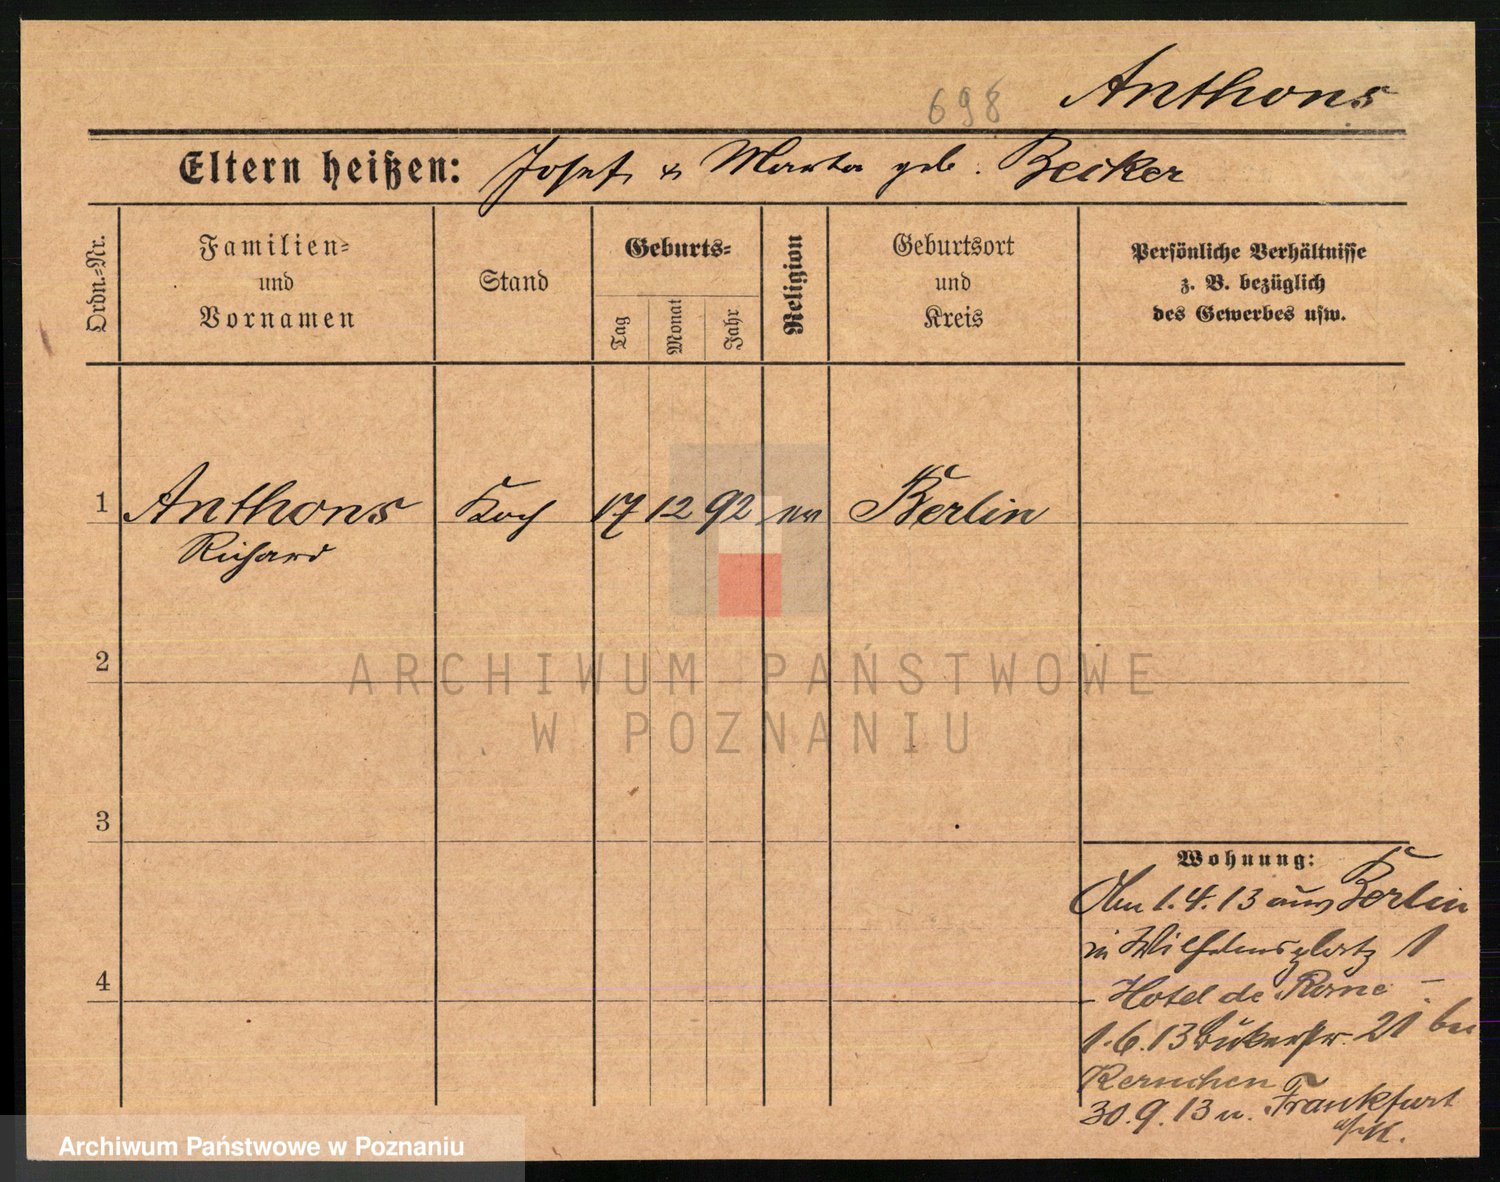 698 Anthons
Eltern heißen: Josef u Marta geb. Becker
Ordn.-Nr.
Familien- und Vornamen
Stand
Geburts-
Tag
Monat
Jahr
Religion
Geburtsort und Kreis
Persönliche Verhältnisse
z. B. bezüglich
des Gewerbes usw.
1 Anthons Koch 17 12 92 ev Berlin
Richard
2
3
4
Wohnung:
Am 1.4.13 aus Berlin
in Wilhelmsplatz 1
- Hotel de Rome -
1.6.13 21 bei
30.9.13 n. Frankfurt
a/M.
ARCHIWUM PAŃSTWOWE
W POZNANIU
Archiwum Państwowe w Poznaniu